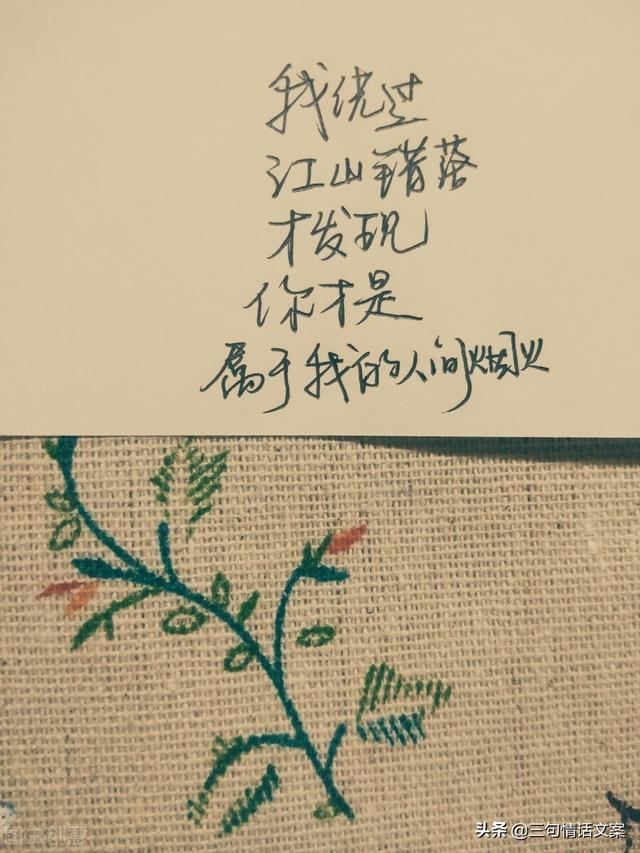 我绕过
江山错落
才发现
你才是
属于我的人间烟火
图虫创意
头条 @三句情话文案